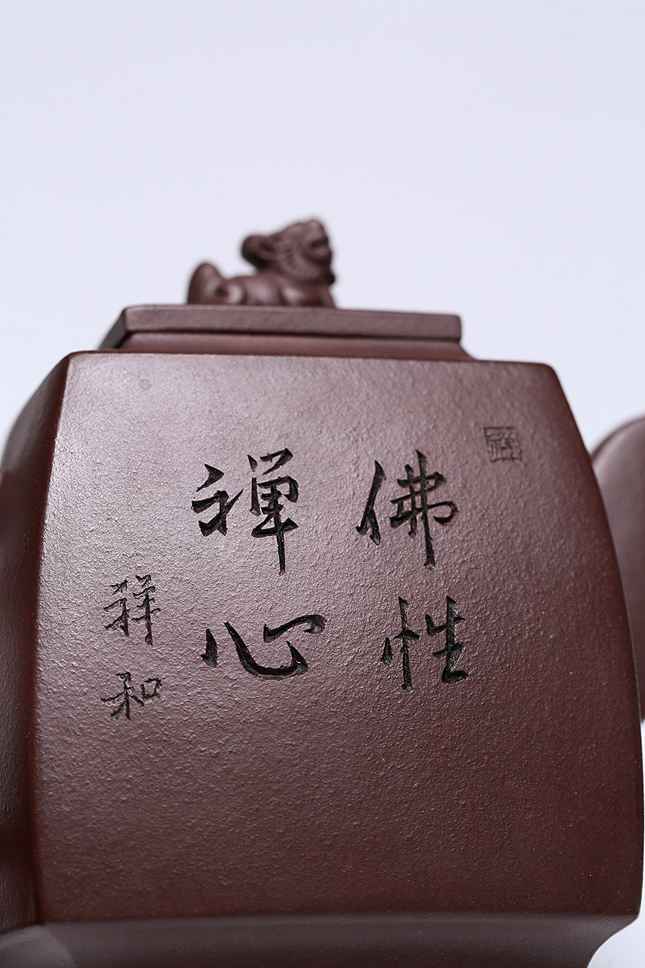 佛性
禅心
祥和